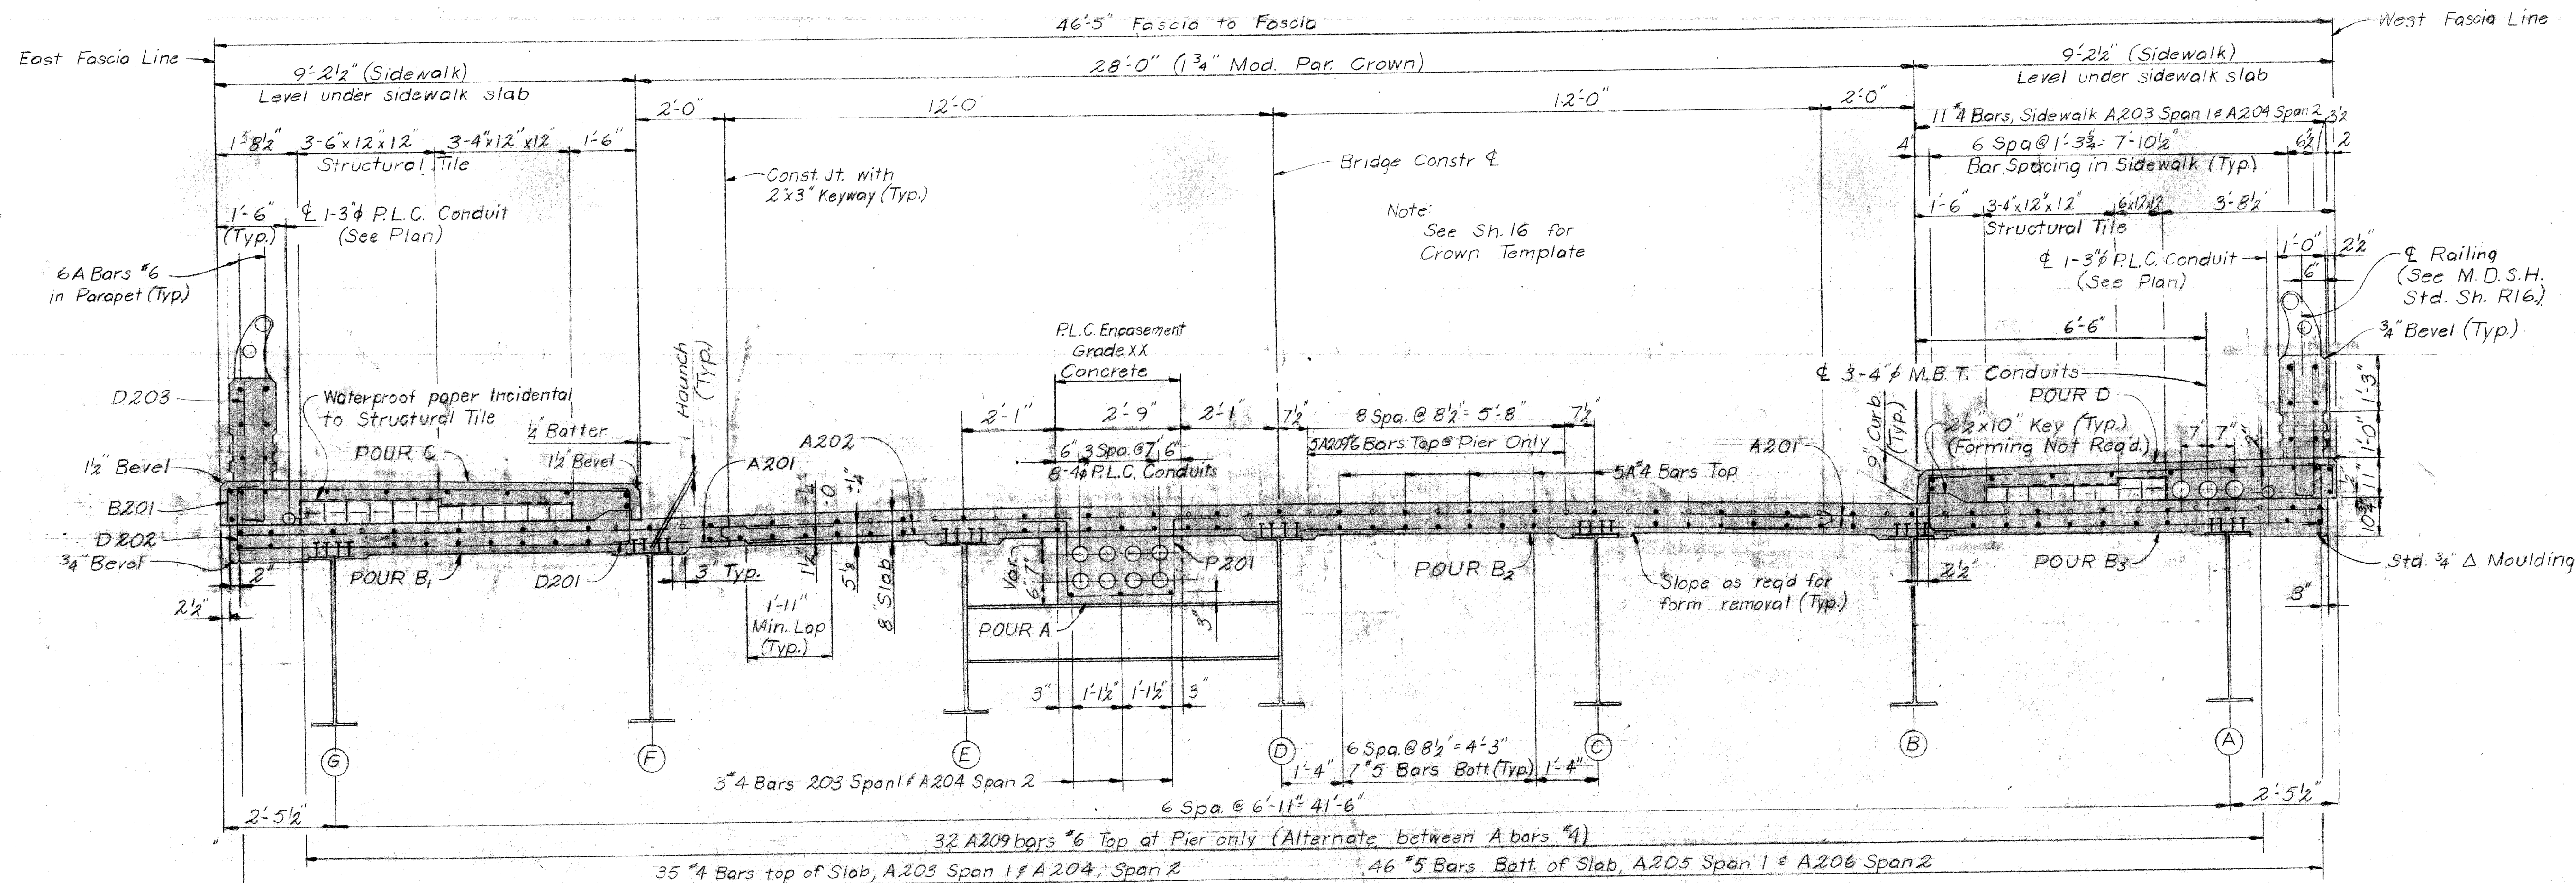 46'-5" Fascia to Fascia
West Fascia Line
East Fascia Line
9'-2½" (Sidewalk)
Level under sidewalk slab
28'-0" (1¾" Mod. Par. Crown)
9'-2½" (Sidewalk)
Level under sidewalk slab
2'-0"
12'-0"
12'-0"
2'-0"
11 #4 Bars, Sidewalk A203 Span 1 & A204 Span 2
3½
1'-8½"
3-6"x12"x12"
3-4"x12"x12"
1'-6"
Structural Tile
4"
6 Spa @ 1'-3¾= 7'-10½"
6½
2
Bar Spacing in Sidewalk (Typ.)
Const. Jt. with
2"x3" Keyway (Typ.)
Bridge Constr ℄
1'-6"
(Typ.)
℄ 1-3"φ P.L.C. Conduit
(See Plan)
Note:
See Sh. 16 for
Crown Template
1'-6"
3-4"x12"x12"
6x12x12
3'-8½"
Structural Tile
℄ 1-3"φ P.L.C. Conduit
(See Plan)
1'-0"
2½"
6"
℄ Railing
(See M.D.S.H.
Std. Sh. R16.)
6A Bars #6
in Parapet (Typ.)
¾" Bevel (Typ.)
6'-6"
P.L.C. Encasement
Grade XX
Concrete
Haunch
(Typ.)
℄ 3-4"φ M.B.T. Conduits
POUR D
D203
Waterproof paper Incidental
to Structural Tile
¼" Batter
POUR C
1½" Bevel
1½" Bevel
2'-1"
2'-9"
2'-1"
7½"
8 Spa. @ 8½"= 5'-8"
7½"
6"
3 Spa. @ 7"
6"
5A209#6 Bars Top @ Pier Only
8-4"φ P.L.C. Conduits
5A#4 Bars Top
A202
A201
A201
9" Curb
(Typ.)
2½"x10" Key (Typ.)
(Forming Not Req'd.)
7"
7"
2"
1'-3"
1'-0"
11"
1½"
10¾"
B201
D202
¾" Bevel
2"
2½"
POUR B₁
D201
3" Typ.
1'-11"
Min. Lap
(Typ.)
1½" +¼" -0
5⅛ +¼"
8" Slab
Var.
6"-7"
P201
POUR A
3"
POUR B₂
Slope as req'd for
form removal (Typ.)
2½"
POUR B₃
Std. ¾" Δ Moulding
3"
3"
1'-1½"
1'-1½"
3"
G
F
E
D
C
B
A
3 #4 Bars 203 Span 1 & A204 Span 2
1'-4"
6 Spa. @ 8½" = 4'-3"
7 #5 Bars Bott. (Typ.)
1'-4"
2'-5½"
6 Spa. @ 6'-11"= 41'-6"
2'-5½"
32 A209 bars #6 Top at Pier only (Alternate between A bars #4)
35 #4 Bars top of Slab, A203 Span 1 & A204, Span 2
46 #5 Bars Bott. of Slab, A205 Span 1 & A206 Span 2